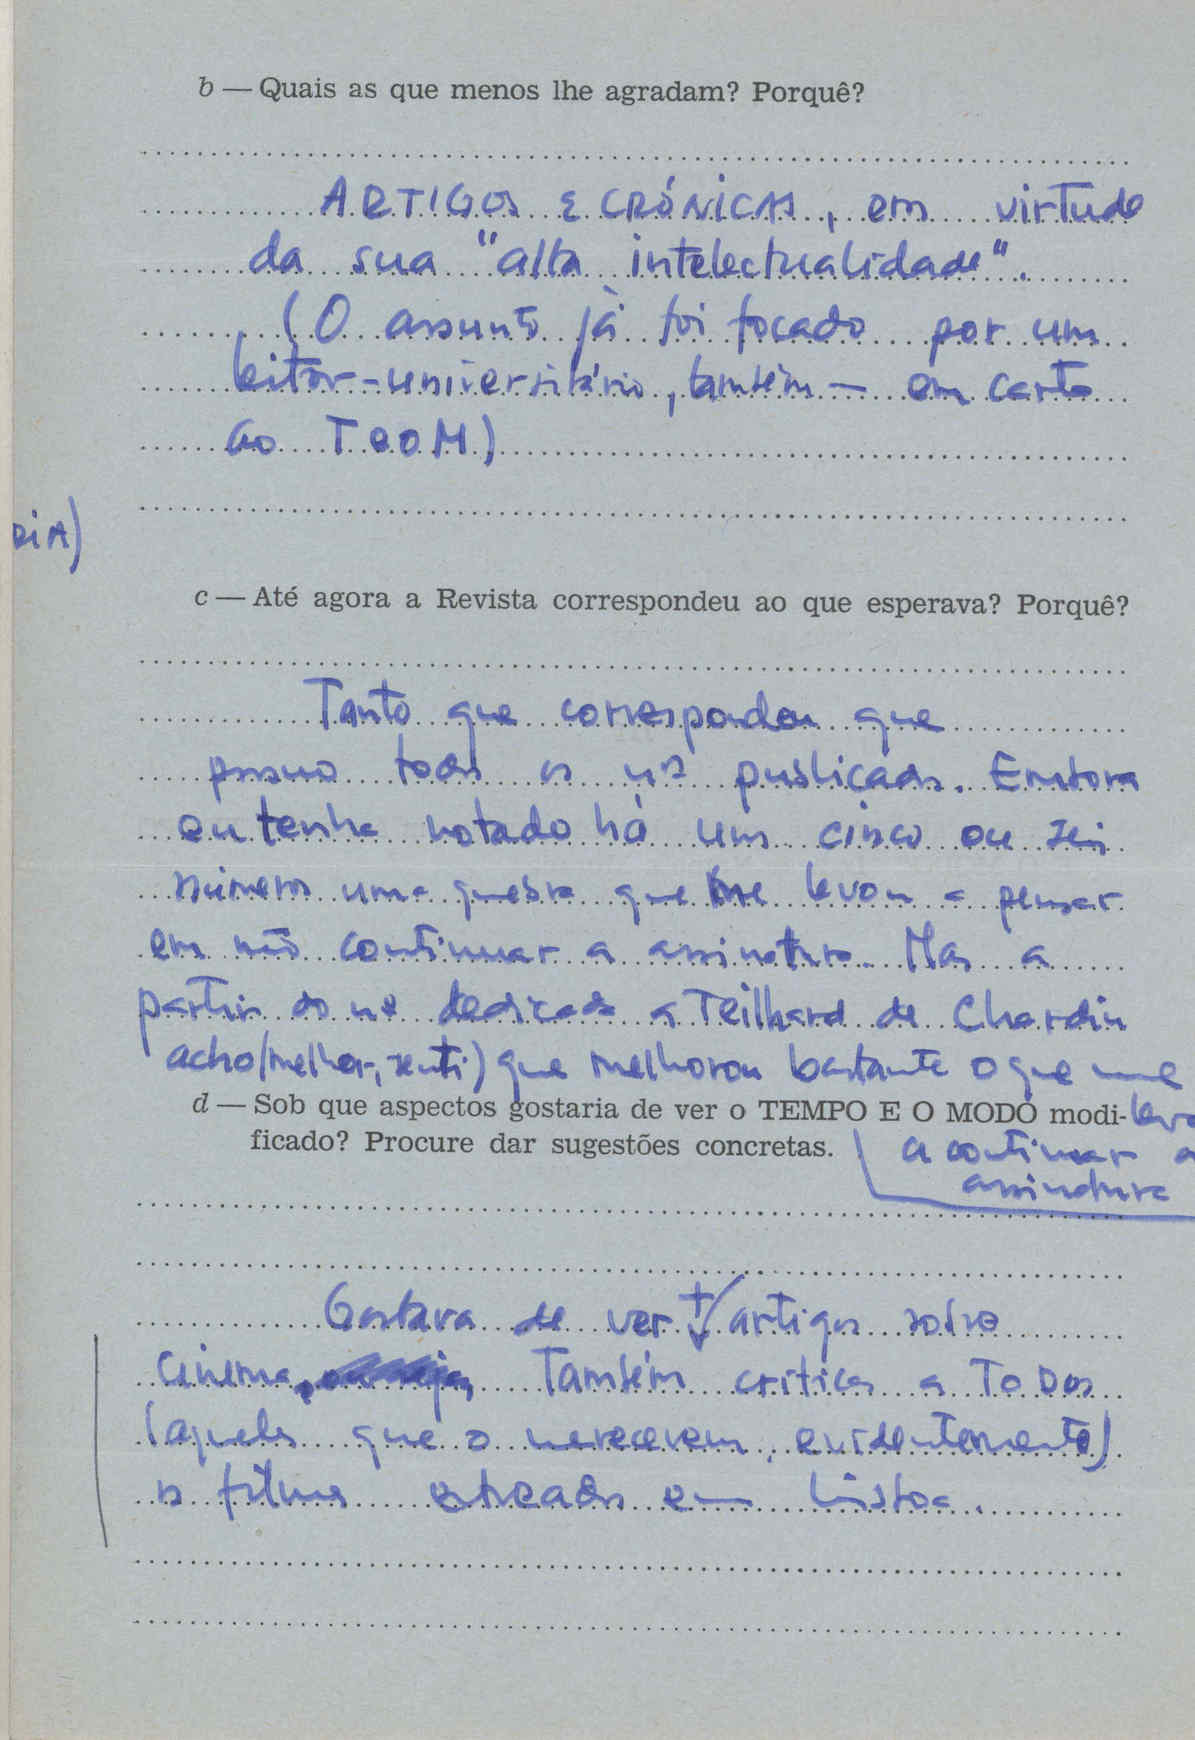 b — Quais as que menos lhe agradam? Porquê?
ARTIGOS E CRÓNICAS, em virtude
da sua "alta intelectualidade".
(O assunto já foi focado por um
leitor-universitário, também — em carta
ao T e o M)
RIA)
c — Até agora a Revista correspondeu ao que esperava? Porquê?
Tanto que correspondeu que
possuo todos os nºs publicados. Embora
eu tenha notado há uns cinco ou seis
números uma quebra que me levou a pensar
em não continuar a assinatura. Mas a
partir do nº dedicado a Teilhard de Chardin
acho (melhor, senti) que melhorou bastante o que me
d — Sob que aspectos gostaria de ver o TEMPO E O MODO modi- leva
ficado? Procure dar sugestões concretas. a continuar a
assinatura
Gostava de ver + artigos sobre
cinema, Também críticas a TODOS
(aqueles que o merecerem, evidentemente)
os filmes estreados em Lisboa.